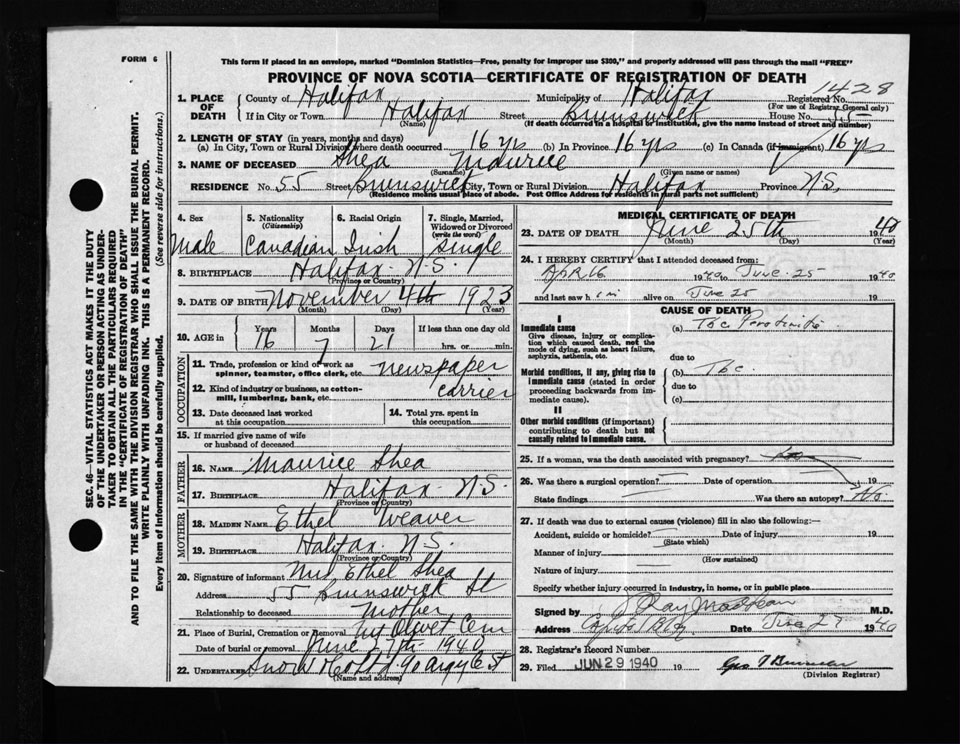 FORM 6
This form if placed in an envelope, marked "Dominion Statistics—Free, penalty for improper use $300," and properly addressed will pass through the mail "FREE"
PROVINCE OF NOVA SCOTIA—CERTIFICATE OF REGISTRATION OF DEATH
1428
1. PLACE OF DEATH
County of Halifax Municipality of Halifax Registered No.
(For use of Registrar General only)
If in City or Town Halifax Street Brunswick House No. 55
(Name) (If death occurred in a hospital or institution, give the name instead of street and number)
2. LENGTH OF STAY (in years, months and days)
(a) In City, Town or Rural Division where death occurred 16 yrs (b) In Province 16 yrs (c) In Canada (if immigrant) 16 yrs
3. NAME OF DECEASED Shea Maurice
(Surname) (Given name or names)
RESIDENCE No. 55 Street Brunswick City, Town or Rural Division Halifax Province N.S.
(Residence means usual place of abode. Post Office Address for residents in rural parts not sufficient)
4. Sex
Male
5. Nationality
(Citizenship)
Canadian
6. Racial Origin
Irish
7. Single, Married, Widowed or Divorced
(write the word)
Single
8. BIRTHPLACE Halifax N.S.
(Province or Country)
9. DATE OF BIRTH November 4th 1923
(Month) (Day) (Year)
10. AGE in Years Months Days If less than one day old
16 7 21 hrs. or min.
OCCUPATION
11. Trade, profession or kind of work as spinner, teamster, office clerk, etc. newspaper
12. Kind of industry or business, as cotton-mill, lumbering, bank, etc. carrier
13. Date deceased last worked at this occupation
14. Total yrs. spent in this occupation
15. If married give name of wife or husband of deceased
FATHER
16. NAME Maurice Shea
17. BIRTHPLACE Halifax N.S.
(Province or Country)
MOTHER
18. MAIDEN NAME Ethel Weaver
19. BIRTHPLACE Halifax N.S.
(Province or Country)
20. Signature of informant Mrs Ethel Shea
Address 55 Brunswick St
Relationship to deceased Mother
21. Place of Burial, Cremation or Removal Mt Olivet Cem
Date of burial or removal June 27th 1940
22. UNDERTAKER Snow & Co Ltd 90 Argyle St
(Name and address)
MEDICAL CERTIFICATE OF DEATH
23. DATE OF DEATH June 25th 1940
(Month) (Day) (Year)
24. I HEREBY CERTIFY that I attended deceased from:
Apr 16 1940 to June 25 1940
and last saw him alive on June 25 19
CAUSE OF DEATH
I
Immediate cause
Give disease, injury or complication which caused death, not the mode of dying, such as heart failure, asphyxia, asthenia, etc.
(a) Tbc Peritonitis
due to
Morbid conditions, if any, giving rise to immediate cause (stated in order proceeding backwards from immediate cause).
(b) Tbc.
due to
(c)
II
Other morbid conditions (if important) contributing to death but not causally related to immediate cause.
25. If a woman, was the death associated with pregnancy?
26. Was there a surgical operation? Date of operation 19
State findings Was there an autopsy? No.
27. If death was due to external causes (violence) fill in also the following:—
Accident, suicide or homicide? Date of injury 19
(State which)
Manner of injury
(How sustained)
Nature of injury
Specify whether injury occurred in industry, in home, or in public place
Signed by M.D.
Address Capitol Bldg Date June 27 1940
28. Registrar's Record Number
29. Filed JUN 29 1940 19
(Division Registrar)
SEC. 46—VITAL STATISTICS ACT MAKES IT THE DUTY OF THE UNDERTAKER OR PERSON ACTING AS UNDERTAKER TO OBTAIN ALL THE PARTICULARS REQUIRED IN THE "CERTIFICATE OF REGISTRATION OF DEATH" AND TO FILE THE SAME WITH THE DIVISION REGISTRAR WHO SHALL ISSUE THE BURIAL PERMIT.
WRITE PLAINLY WITH UNFADING INK. THIS IS A PERMANENT RECORD.
Every item of information should be carefully supplied. (See reverse side for instructions.)